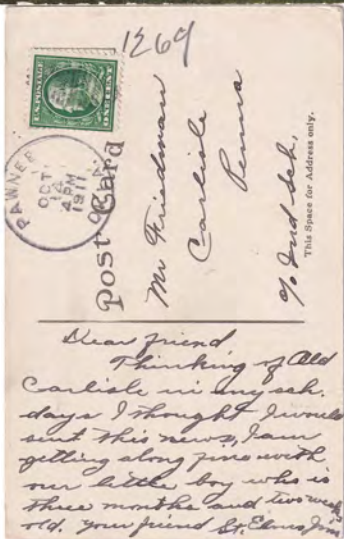 1269
PAWNEE
OCT
12
4 PM
1911
OKLA.
U.S. POSTAGE
ONE CENT
Post Card
Mr Friedman
Carlisle
Penna
c/o Ind Sch.
This Space for Address only.
Dear friend
Thinking of Old
Carlisle in my sch.
days I thought I would
sent this news, I am
getting along fine with
our little boy who is
three months and two weeks
old. your friend St. Elmo Jim